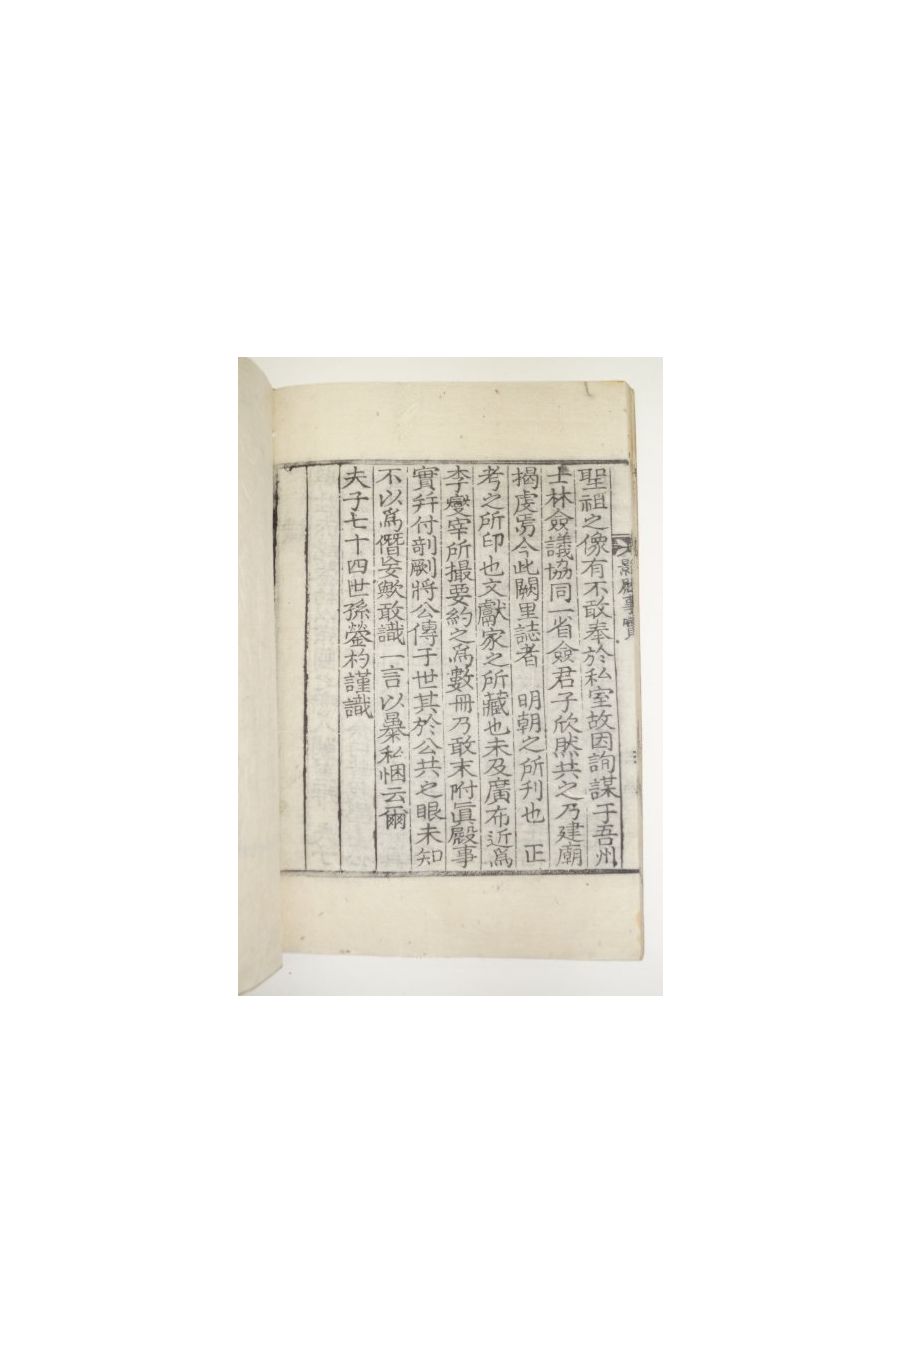 影殿事實
聖祖之像有不敢奉於私室故因詢謀于吾州
士林僉議協同一省僉君子欣然共之乃建廟
揭虔焉今此闕里誌者 明朝之所刊也 正
考之所印也文獻家之所藏也未及廣布近爲
李燮宰所撮要約之爲數冊乃敢末附眞殿事
實幷付剞劂將公傳于世其於公共之眼未知
不以爲僭妄歟敢識一言以暴私悃云爾
夫子七十四世孫 杓謹識